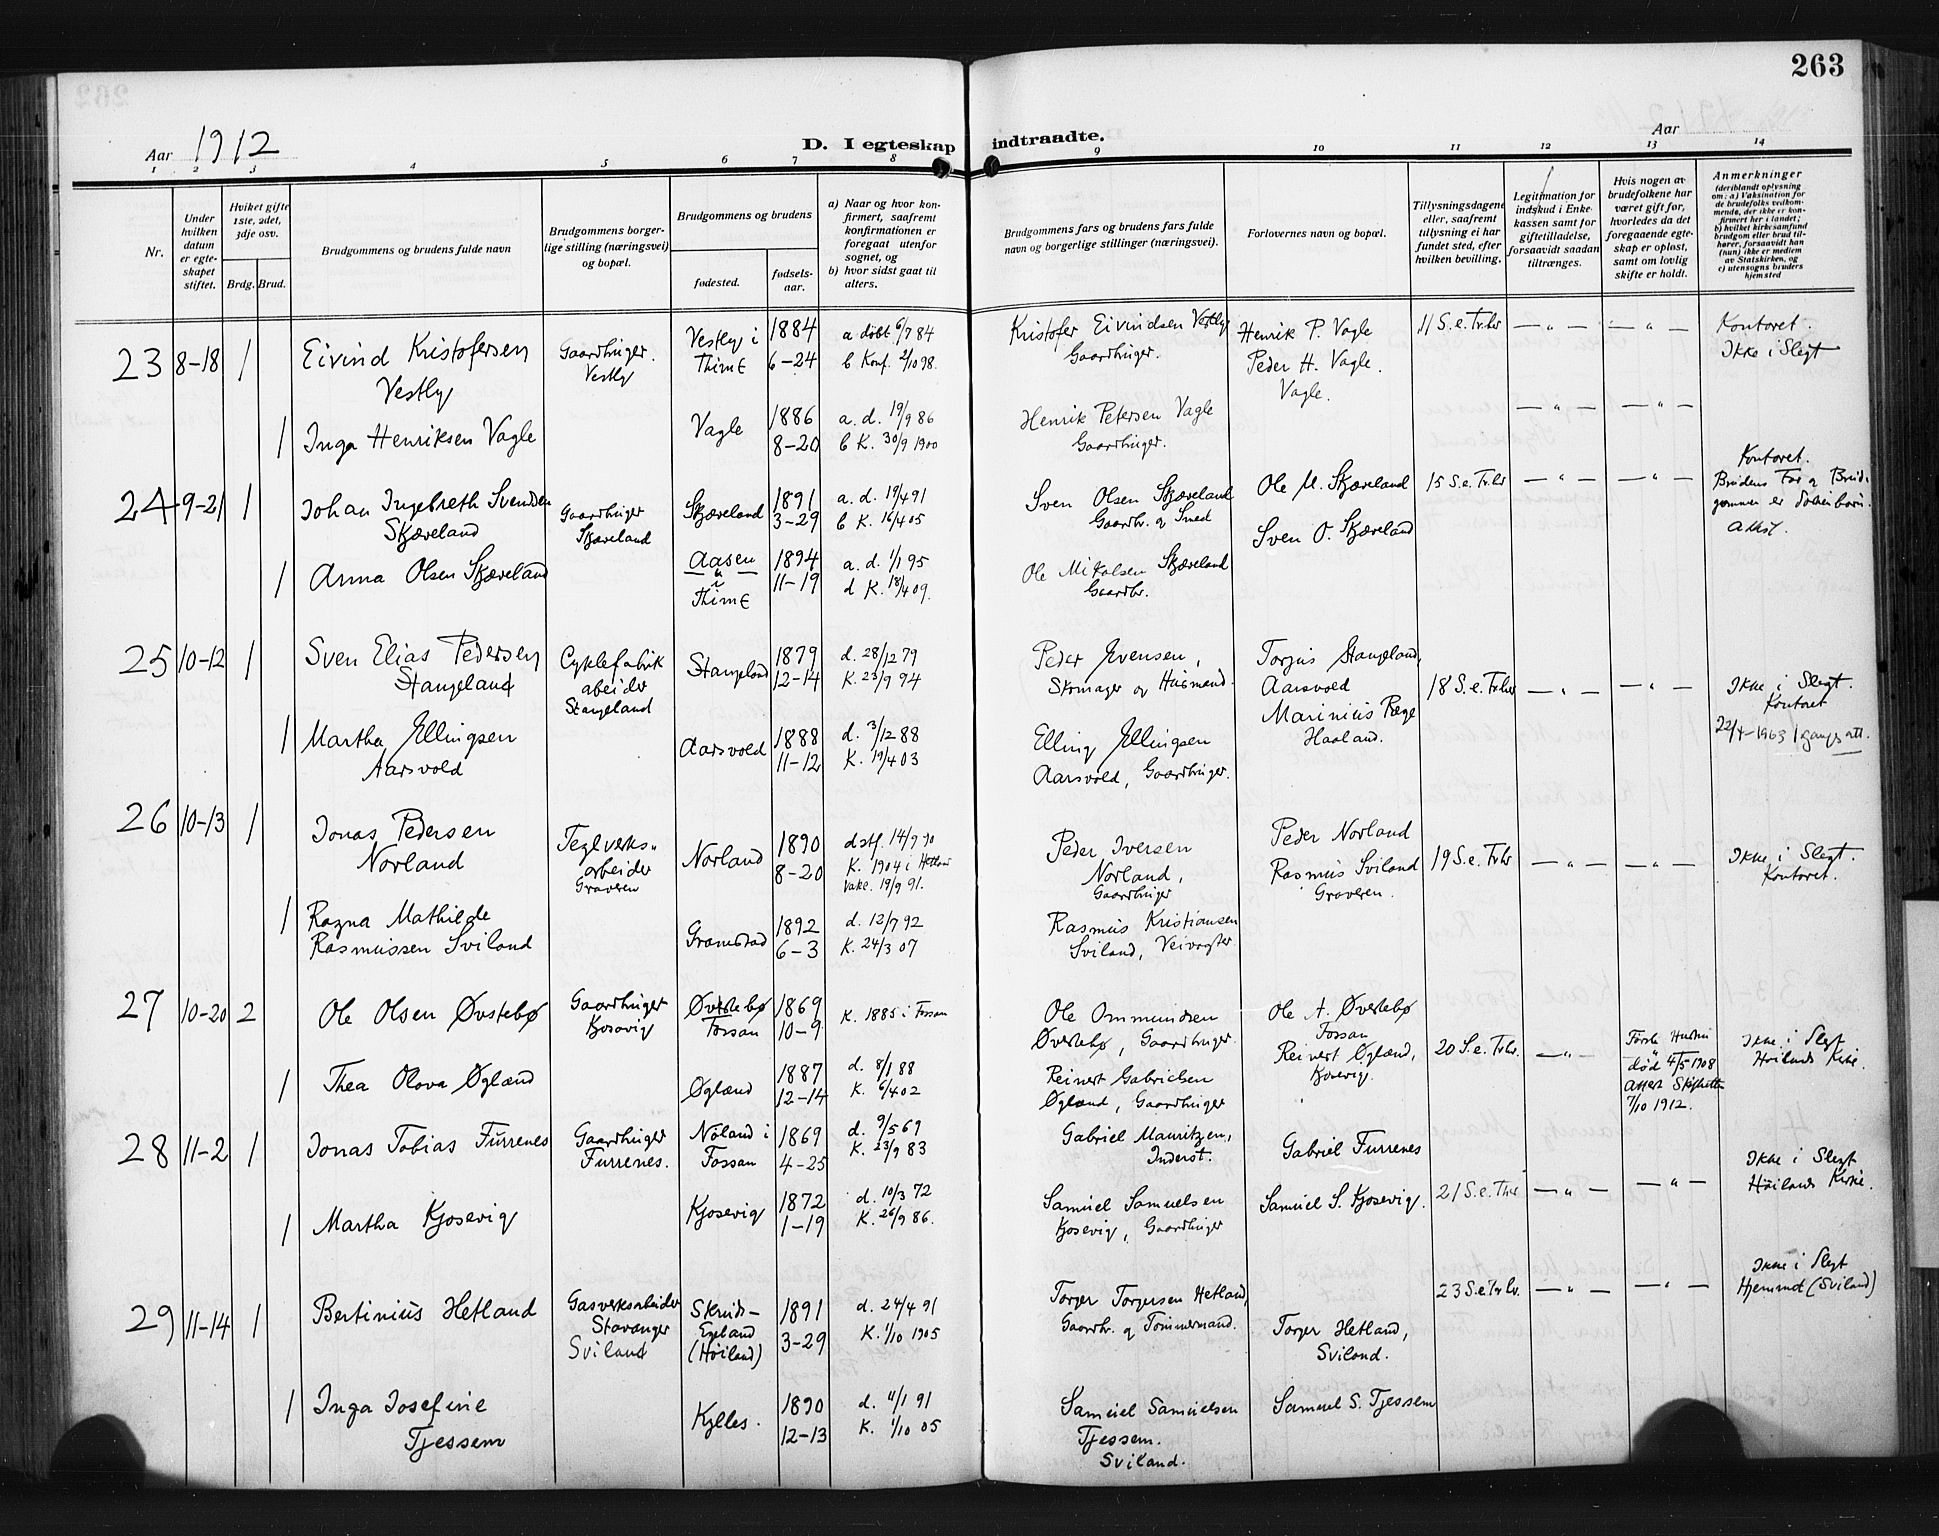 263
Aar 1912
D. I egteskap indtraadte.
Aar
1 2 3 4 5 6 7 8 9 10 11 12 13 14
Nr.
Under hvilken datum er egte-skapet stiftet.
Hviket gifte 1ste, 2det, 3dje osv.
Brdg. Brud.
Brudgommens og brudens fulde navn
Brudgommens borger-lige stilling (næringsvei) og bopæl.
Brudgommens og brudens
fødested.
fødsels-aar.
a) Naar og hvor kon-firmert, saafremt konfirmationen er foregaat utenfor sognet, og
b) hvor sidst gaat til alters.
Brudgommens fars og brudens fars fulde navn og borgerlige stillinger (næringsvei).
Forlovernes navn og bopæl.
Tillysningsdagene eller, saafremt tillysning ei har fundet sted, efter hvilken bevilling.
Legitimation for indskud i Enke-kassen samt for giftetilladelse, forsaavidt saadan tiltrænges.
Hvis nogen av brudefolkene har været gift før, hvorledes da det foregaaende egte-skap er opløst, samt om lovlig skifte er holdt.
Anmerkninger
(deriblandt oplysning om: a) Vaksination for de brudefolks vedkom-mende, der ikke er kon-firmert her i landet; b) hvilket kirkesamfund brudgom eller brud til-hører, forsaavidt han (hun) ikke er medlem av Statskirken, og c) utensogns bruders hjemsted
23 8-18 1 Eivind Kristofersen Vestly
Gaardbruger. Vestly
Vestly i Thime
1884 6-24
a døbt 6/7 84
b Konf. 2/10 98.
Kristofer Eivindsen Vestly Gaardbruger.
Henrik P. Vagle
Peder H. Vagle.
Vagle.
11 S.e.Tr.
— " — — " —
Kontoret.
Ikke i Slegt
1 Inga Henriksen Vagle
Vagle
1886 8-20
a. d. 19/9 86
b K. 30/9 1900
Henrik Petersen Vagle Gaardbruger.
— " — — " —
24 9-21 1 Johan Ingebreth Svendsen Skjæveland
Gaardbruger Skjæveland
Skjæveland
1891 3-29
a. d. 19/4 91
b K. 16/4 05
Sven Olsen Skjæveland Gaardbr. og Smed
Ole M. Skjæveland
Sven O. Skjæveland
15 S.e.Tr.
— " — — " —
Kontoret.
Brudens Far og Brud-gommen er
1 Anna Olsen Skjæveland
Aasen i Thime
1894 11-19
a. d. 1/1 95
d K. 18/4 09.
Ole Mikalsen Skjæveland Gaardbr.
25 10-12 1 Sven Elias Pedersen Stangeland
Cyklefabrik abeider Stangeland
Stangeland
1879 12-14
d. 28/12 79
K. 23/9 94
Peder Evensen,
Skomager og Husmand.
Torjus Stangeland,
Aarsvold
Marinius Ræge
Haaland.
18 S.e.Tr
— " — — " —
Ikke i Slegt.
Kontoret
22/4-1963
1 Martha Ellingsen Aarsvold
Aarsvold
1888 11-12
d. 3/12 88
K. 19/4 03
Elling Ellingsen
Aarsvold, Gaardbruger.
26 10-13 1 Jonas Pedersen Norland
Teglverks" arbeider Graveren
Norland
1890 8-20
d stf. 14/9 90
K. 1904 i Hetland
Vakc. 19/9 91.
Peder Iversen
Norland,
Gaardbruger
Peder Norland
Rasmus Sviland
Graveren.
19 S.e. Tr
— " — — " —
Ikke i Slegt.
Kontoret.
1 Ragna Mathilde Rasmussen Sviland
Gramstad
1892 6-3
d. 12/7 92
K. 24/3 07
Rasmus Kristiansen
Sviland, Veivogter
27 10-20 2 Ole Olsen Øvstebø
Gaardbruger Kjosavig
Øvstebø Fossan
1869 10-9
K. 1885 i Fossan
Ole Ommundsen
Øvstebø, Gaardbruger.
Ole A. Øvstebø
Fossan
Reinert Øgland,
Kjosevig.
20 S.e. Tr.
— " —
Første Hustru død 4/5 1908
Attest Skifteretten 7/10 1912.
Ikke i Slegt
Høilands Kirke.
1 Thea Olova Øglænd
Øglænd
1887 12-14
d. 8/1 88
K. 6/4 02
Reinert Gabrielsen
Øgland, Gaardbruger
28 11-2 1 Jonas Tobias Furrenes
Gaardbruger Furrenes.
Nøland i Fossan
1869 4-25
d. 9/5 69
K. 23/9 83
Gabriel Mauritzen,
Inderst.
Gabriel Furrenes
Samuel S. Kjosevig.
21 S.e. Tr
— " — — " —
Ikke i Slegt
Høilands Kirke.
1 Martha Kjosevig
Kjosevig
1872 1-19
d. 10/3 72
K. 26/9 86.
Samuel Samuelsen
Kjosevig, Gaardbruger
29 11-14 1 Bertinius Hetland
Gasverksarbeider Stavanger Sviland
Skruds-Egeland (Høiland)
1891 3-29
d. 24/4 91
K. 1/10 1905
Torger Torgersen Hetland,
Gaardbr. og Tømmermand.
Torger Hetland,
Sviland.
23 S.e.Tr.
— " — — " —
Ikke i Slegt
Hjemmet (Sviland)
1 Inga Josefine Tjessem
Kylles.
1890 12-13
d. 4/1 91
K. 1/10 05
Samuel Samuelsen
Tjessem.
Sviland.
Samuel S. Tjessem